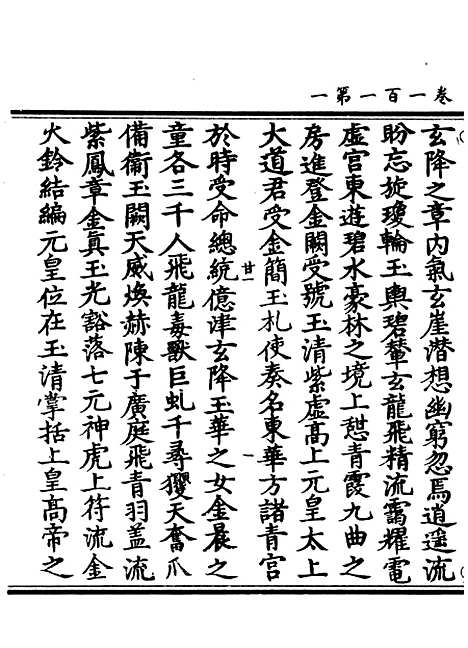 卷一百一第一
玄降之章内氣玄崖潛想幽窮忽焉逍遥流
盼忘旋瓊輪玉輿碧輦玄龍飛精流靄耀電
虚宫東遊碧水豪林之境上憇青霞九曲之
房進登金闕受號玉清紫虚高上元皇太上
大道君受金簡玉札使奏名東華方諸青宫
廿一
於時受命總統億津玄降玉華之女金晨之
童各三千人飛龍毒獸巨虬千尋玃天奮爪
備衛玉闕天威焕赫陳于廣庭飛青羽盖流
紫鳳章金真玉光豁落七元神虎上符流金
火鈴結編元皇位在玉清掌括上皇高帝之